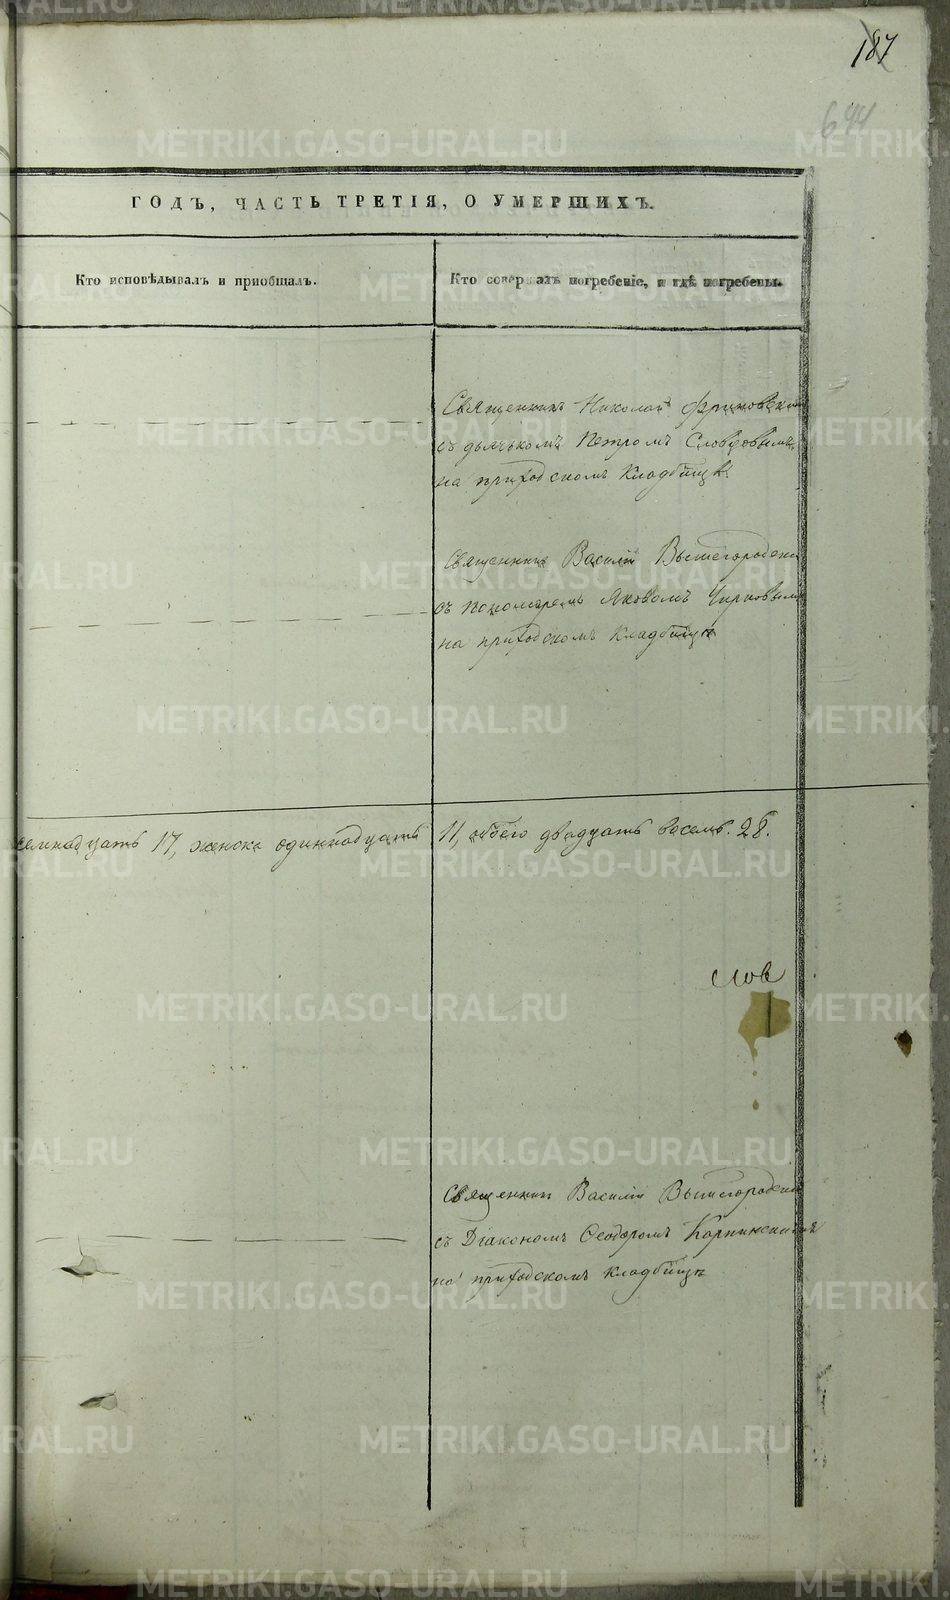 187
644
ГОДЪ, ЧАСТЬ ТРЕТІЯ, О УМЕРШИХЪ.
Кто исповѣдывалъ и пріобщалъ.
Кто совершалъ погребеніе, и гдѣ погребены.
Священникъ Николай
съ дьячькомъ Петромъ Словцовымъ
на приходскомъ кладбищѣ
Священникъ Василій Вышегородскій
съ пономаремъ Яковомъ Чирковымъ
на приходскомъ кладбищѣ
семнадцать 17, женска одиннадцать 11, обоего двадцать восемь. 28.
слов
Священникъ Василій Вышегородскій
съ Діакономъ Ѳеодоромъ Карпинскимъ
на приходскомъ кладбищѣ
METRIKI.GASO-URAL.RU